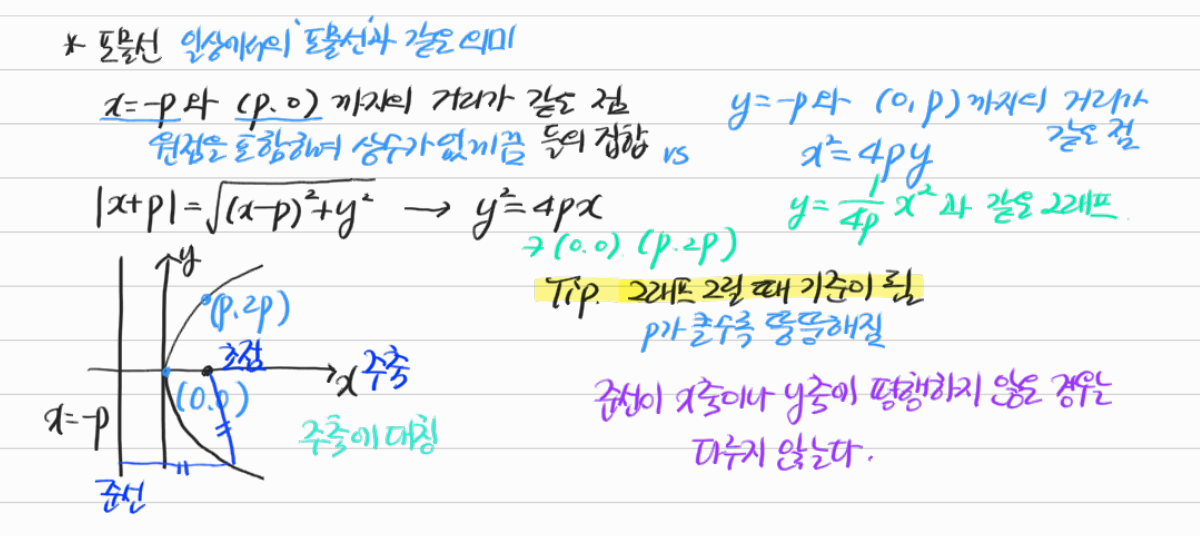 * 포물선 일상에서의 '포물선'과 같은 의미
x=-p와 (p.0) 까지의 거리가 같은 점
들의 집합
원점을 포함하며 상수가 없게끔
vs
y=-p와 (0,p)까지의 거리가
같은 점
x²=4py
|x+p|=√((x-p)²+y²) → y²=4px
y=1/4p x²과 같은 그래프
→ (0.0). (p.2p)
Tip. 그래프 그릴 때 기준이 될
p가 클수록 뚱뚱해짐
y
(p.2p)
초점
x 주축
(0.0)
x=-p
주축에 대칭
준선
준선이 x축이나 y축에 평행하지 않은 경우는
다루지 않는다.